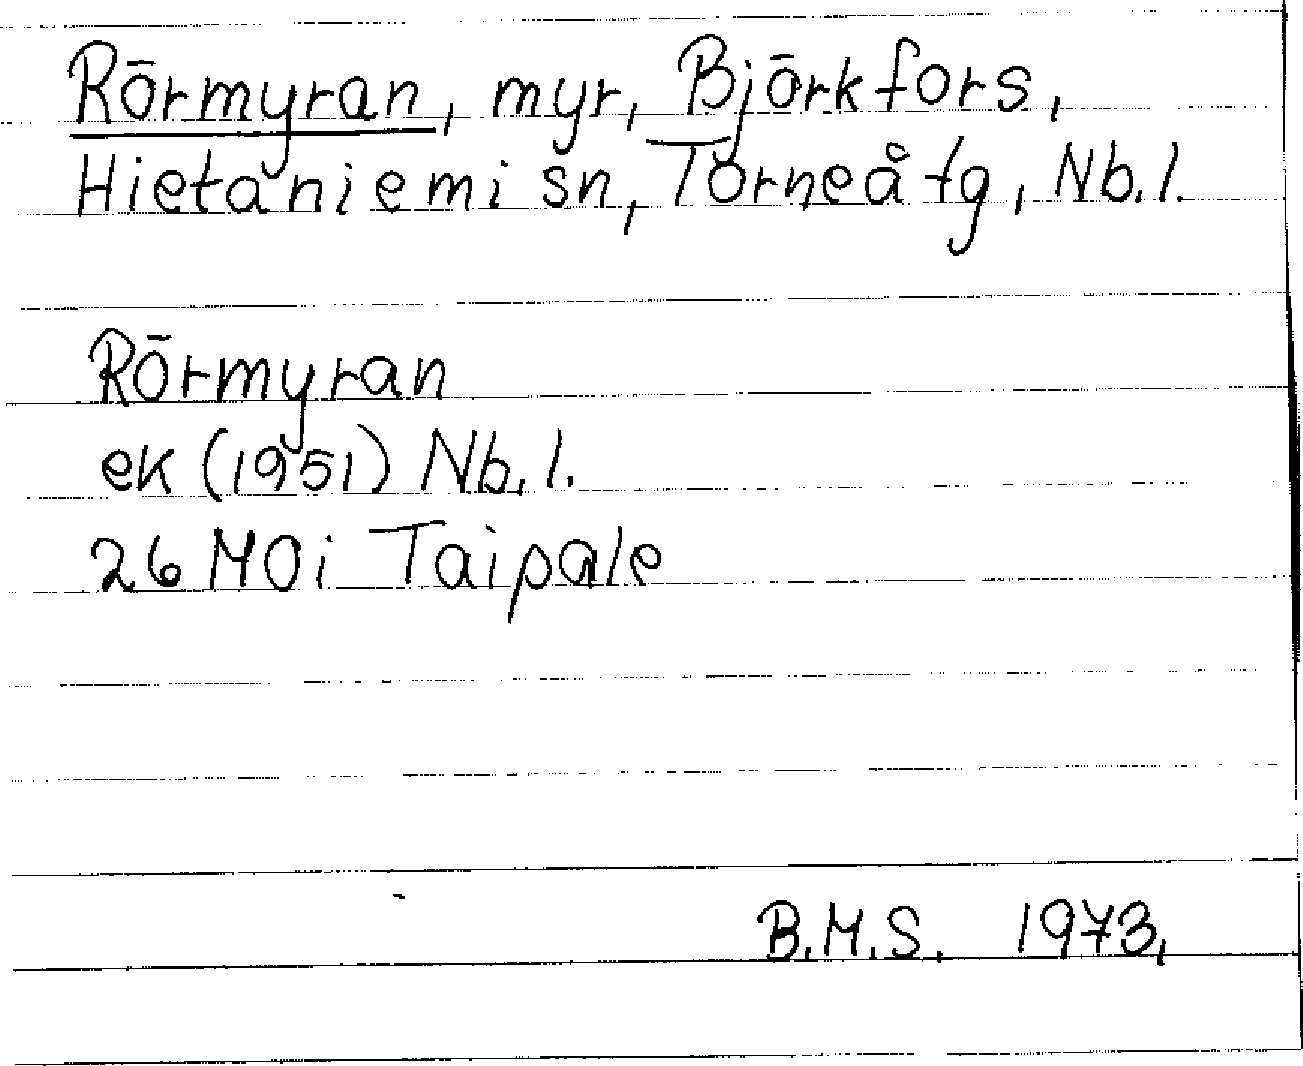 Rörmyran, myr, Björkfors,
Hietaniemi sn, Torneå tg, Nb.l.
Rörmyran
ek (1951) Nb.l.
26 M0i Taipale
B.M.S. 1973,